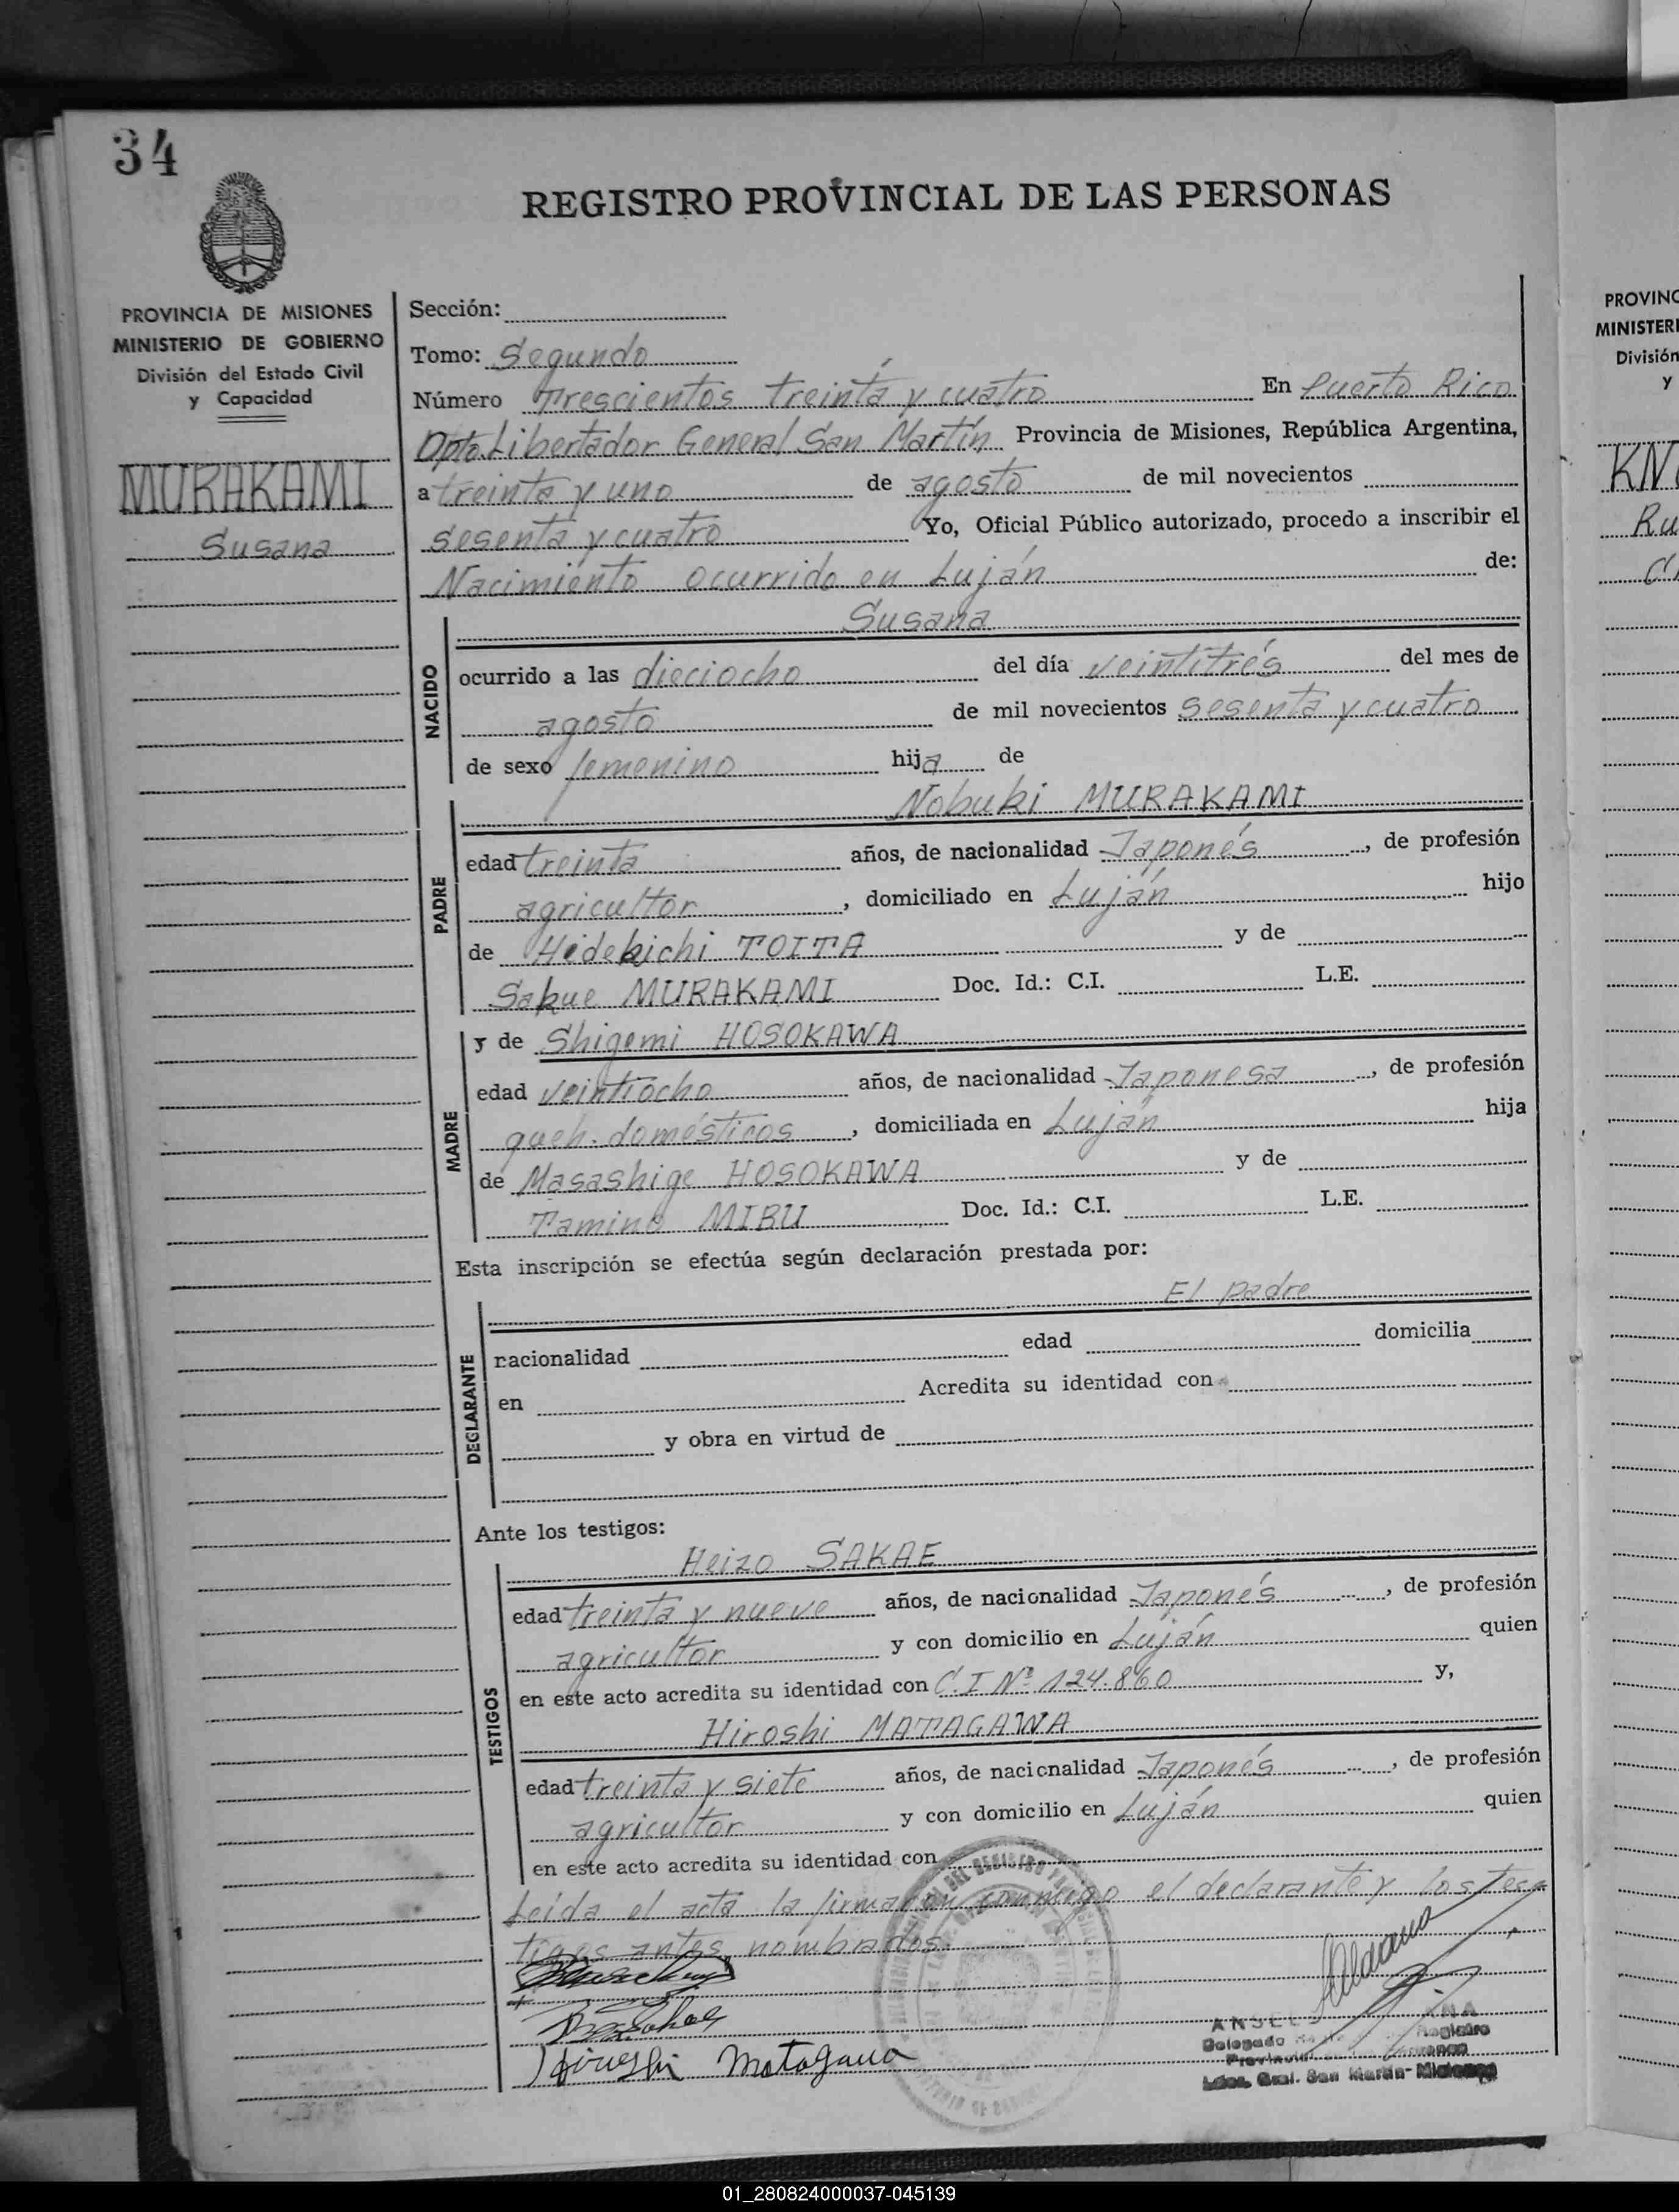 34
REGISTRO PROVINCIAL DE LAS PERSONAS
PROVINCIA DE MISIONES
MINISTERIO DE GOBIERNO
División del Estado Civil
y Capacidad
MURAKAMI
Susana
Sección:
Tomo: Segundo
Número Trescientos treinta y cuatro En Puerto Rico
Dpto. Libertador General San Martín, Provincia de Misiones, República Argentina,
a treinta y uno de agosto de mil novecientos
sesenta y cuatro Yo, Oficial Público autorizado, procedo a inscribir el
Nacimiento ocurrido en Luján de:
NACIDO
Susana
ocurrido a las dieciocho del día veintitrés del mes de
agosto de mil novecientos sesenta y cuatro
de sexo femenino hija de
PADRE
Nobuki MURAKAMI
edad treinta años, de nacionalidad Japonés, de profesión
agricultor, domiciliado en Luján hijo
de Hidekichi TOITA y de
Sakue MURAKAMI Doc. Id.: C.I. L.E.
MADRE
y de Shigemi HOSOKAWA
edad veintiocho años, de nacionalidad Japonesa, de profesión
queh. domésticos, domiciliada en Luján hija
de Masashige HOSOKAWA y de
Tamino MIBU Doc. Id.: C.I. L.E.
Esta inscripción se efectúa según declaración prestada por:
DECLARANTE
El padre
nacionalidad edad domicilia
en Acredita su identidad con
y obra en virtud de
Ante los testigos:
TESTIGOS
Heizo SAKAE
edad treinta y nueve años, de nacionalidad Japonés, de profesión
agricultor y con domicilio en Luján quien
en este acto acredita su identidad con C.I Nº 124.860 y,
Hiroshi MATAGAWA
edad treinta y siete años, de nacionalidad Japonés, de profesión
agricultor y con domicilio en Luján quien
en este acto acredita su identidad con
Leída el acta la firmaron conmigo el declarante y los tes-
tigos antes nombrados.
Hiroshi Matagawa
Delegado Registro
Ldor. Gral. San Martín - Misiones
PROVINC
MINISTERI
División
y
KN
Ru
01_280824000037-045139